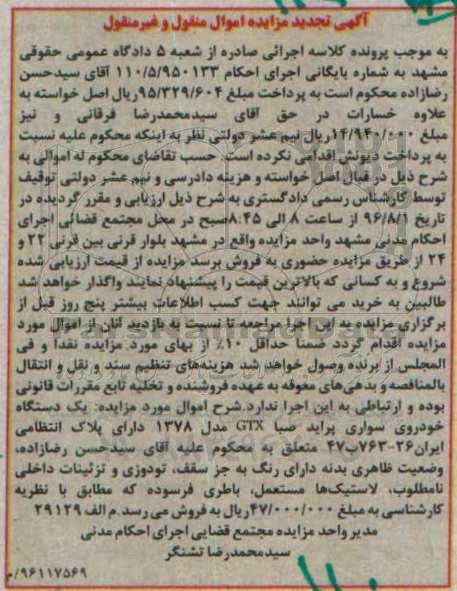 آگهی تجدید مزایده اموال منقول و غیرمنقول
به موجب پرونده کلاسه اجرائی صادره از شعبه ۵ دادگاه عمومی حقوقی
مشهد به شماره بایگانی اجرای احکام ۱۱۰/۵/۹۵۰۱۳۳ آقای سیدحسن
رضازاده محکوم است به پرداخت مبلغ ۹۵/۳۲۹/۶۰۴ریال اصل خواسته به
علاوه خسارات در حق آقای سیدمحمدرضا فرقانی و نیز
مبلغ ۱۴/۹۴۰/۰۰۰ریال نیم عشر دولتی نظر به اینکه محکوم علیه نسبت
به پرداخت دیونش اقدامی نکرده است. حسب تقاضای محکوم له اموالی به
شرح ذیل در قبال اصل خواسته و هزینه دادرسی و نیم عشر دولتی توقیف
توسط کارشناس رسمی دادگستری به شرح ذیل ارزیابی و مقرر گردیده در
تاریخ ۹۶/۸/۱ از ساعت ۸ الی ۸:۴۵صبح در محل مجتمع قضائی اجرای
احکام مدنی مشهد واحد مزایده واقع در مشهد بلوار قرنی بین قرنی ۲۲ و
۲۴ از طریق مزایده حضوری به فروش برسد مزایده از قیمت ارزیابی شده
شروع و به کسانی که بالاترین قیمت را پیشنهاد نمایند واگذار خواهد شد
طالبین به خرید می توانند جهت کسب اطلاعات بیشتر پنج روز قبل از
برگزاری مزایده به این اجرا مراجعه تا نسبت به بازدید آنان از اموال مورد
مزایده اقدام گردد ضمنا حداقل ۱۰٪ از بهای مورد مزایده نقدا و فی
المجلس از برنده وصول خواهد شد هزینه‌های تنظیم سند و نقل و انتقال
بالمناصفه و بدهی‌های معوقه به عهده فروشنده و تخلیه تابع مقررات قانونی
بوده و ارتباطی به این اجرا ندارد.شرح اموال مورد مزایده: یک دستگاه
خودروی سواری پراید صبا GTX مدل ۱۳۷۸ دارای پلاک انتظامی
ایران۲۶-۷۶۳ب۴۷ متعلق به محکوم علیه آقای سیدحسن رضازاده،
وضعیت ظاهری بدنه دارای رنگ به جز سقف، تودوزی و تزئینات داخلی
نامطلوب، لاستیک‌ها مستعمل، باطری فرسوده که مطابق با نظریه
کارشناسی به مبلغ ۴۷/۰۰۰/۰۰۰ریال به فروش می رسد.م الف ۲۹۱۲۹
مدیر واحد مزایده مجتمع قضایی اجرای احکام مدنی
سیدمحمدرضا تشنگر
۹۶۱۱۷۵۶۹/م